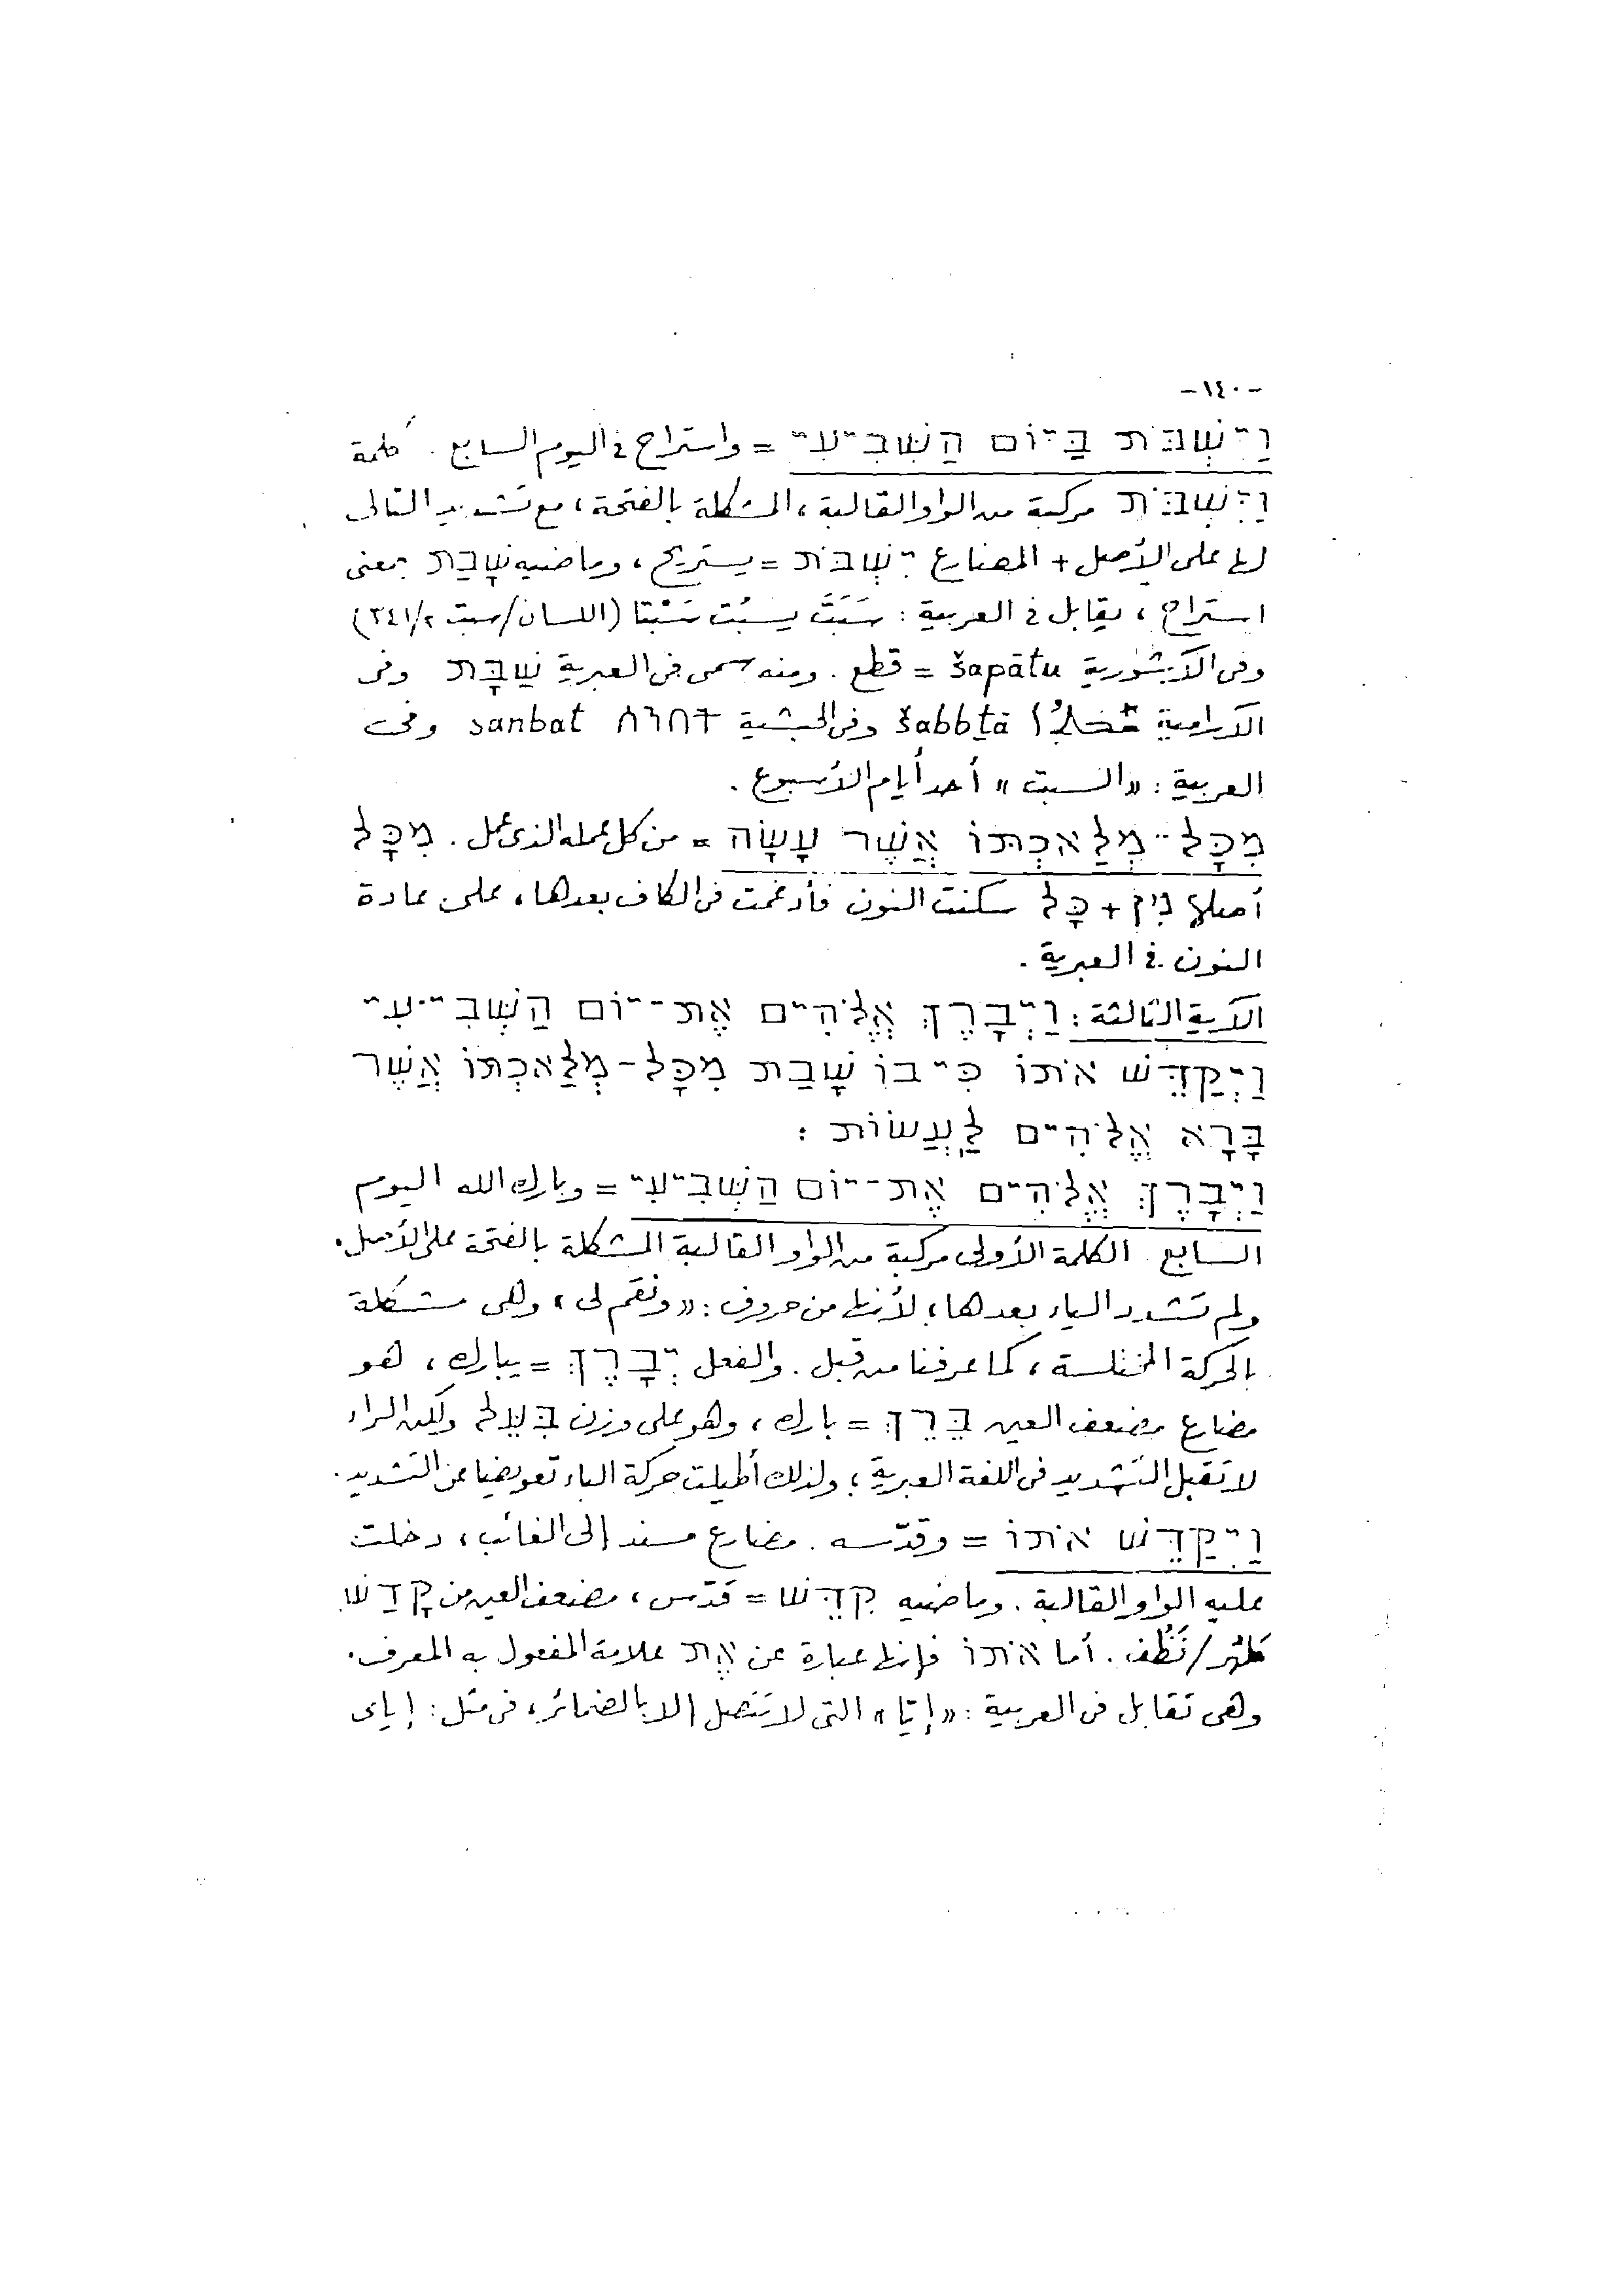 -١٤٠-
וַיִּשְׁבֹּת בַּיּוֹם הַשְּׁבִיעִי = واستراح في اليوم السابع . كلمة
וַיִּשְׁבֹּת مركبة من الواو القالبة ، المشكلة بالفتحة ، مع تشديد التالى
لها على الأصل + المضارع יִשְׁבֹּת = يستريح ، وماضيه שָׁבַת بمعنى
استراح ، يقابل في العربية : سَبَتَ يسبُت سَبْتا (اللسان/سبت ٢/٣٤١)
وفى الآشورية šapātu = قطع . ومنه سمى فى العبرية שַׁבָּת وفى
الآرامية ܫܒܬܐ šabbṯā وفى الحبشية ሰንበት sanbat وفى
العربية : «السبت» أحد أيام الأسبوع .
מִכָּל-מְלַאכְתּוֹ אֲשֶׁר עָשָׂה = من كل عمله الذى عمل . מִכָּל
أصلها מִן + כָּל سكنت النون فأدغمت فى الكاف بعدها ، على عادة
النون في العبرية .
الآية الثالثة : וַיְבָרֶךְ אֱלֹהִים אֶת-יוֹם הַשְּׁבִיעִי
וַיְקַדֵּשׁ אֹתוֹ כִּי בוֹ שָׁבַת מִכָּל-מְלַאכְתּוֹ אֲשֶׁר
בָּרָא אֱלֹהִים לַעֲשׂוֹת :
וַיְבָרֶךְ אֱלֹהִים אֶת-יוֹם הַשְּׁבִיעִי = وبارك الله اليوم
السابع . الكلمة الأولى مركبة من الواو القالبة المشكلة بالفتحة على الأصل .
ولم تشدد الياء بعدها ؛ لأنها من حروف : «ونقم لى» وهى مشكلة
بالحركة المختلسة ، كما عرفنا من قبل . والفعل יְבָרֶךְ = يبارك ، هو
مضارع مضعف العين בֵּרֵךְ = بارك ، وهو على وزن פִּעֵל ولكن الراء
لا تقبل التشديد فى اللغة العبرية ؛ ولذلك أطيلت حركة الباء تعويضا عن التشديد .
וַיְקַדֵּשׁ אֹתוֹ = وقدّسه . مضارع مسند إلى الغائب ، دخلت
عليه الواو القالبة . وماضيه קִדֵּשׁ = قدّس ، مضعف العين من קָדַשׁ
طهُر/نَظُف . أما אֹתוֹ فإنها عبارة عن אֶת علامة المفعول به المعرف .
وهى تقابل فى العربية : «إيّا» التى لا تتصل إلا بالضمائر ، فى مثل : إياى